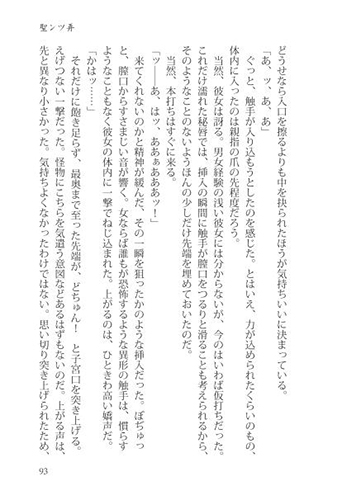 聖ンツ弄
どうせなら入口を擦るよりも中を抉られたほうが気持ちいいに決まっている。
「あっ、あ、あ」
ぐっと、触手が入り込もうとしたのを感じた。とはいえ、力が込められたくらいのもの、
体内に入ったのは親指の爪の先程度だろう。
当然、彼女は訝る。男女経験の浅い彼女には分からないが、今のはいわば仮打ちだった。
これだけ濡れた秘唇では、挿入の瞬間に触手が膣口をつるりと滑ることも考えられるから、
そのようなことのないようほんの少しだけ先端を埋めておいたのだ。
当然、本打ちはすぐに来る。
「ッ――あ、はッ、ああぁあああッ！」
来てくれないのかと精神が緩んだ、その一瞬を狙ったかのような挿入だった。ぼぢゅっ
と、膣口からすさまじい音が響く。女ならば誰もが恐怖するような異形の触手は、慣らす
ようなこともなく彼女の体内に一撃でねじ込まれた。上がるのは、ひときわ高い嬌声だ。
「かはッ……」
それだけに飽き足らず、最奥まで至った先端が、どちゅん！　と子宮口を突き上げる。
えげつない一撃だった。怪物にこちらを気遣う意図などあるはずもないのだ。上がる声は、
先と異なり小さかった。気持ちよくなかったわけではない。思い切り突き上げられたため、
93